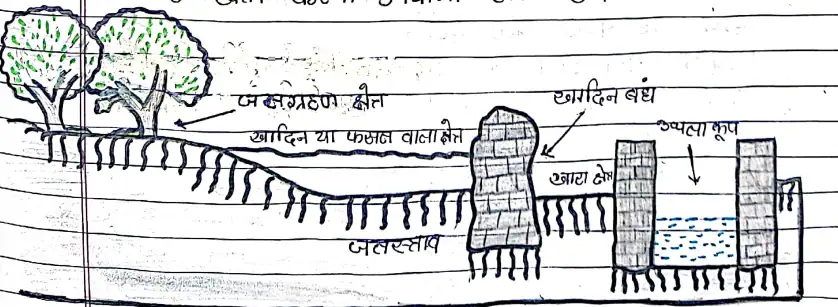 जलसंग्रहण क्षेत्र
खादिन या फसल वाला क्षेत्र
खादिन बंध
उथला कूप
खारा क्षेत्र
जलस्त्राव